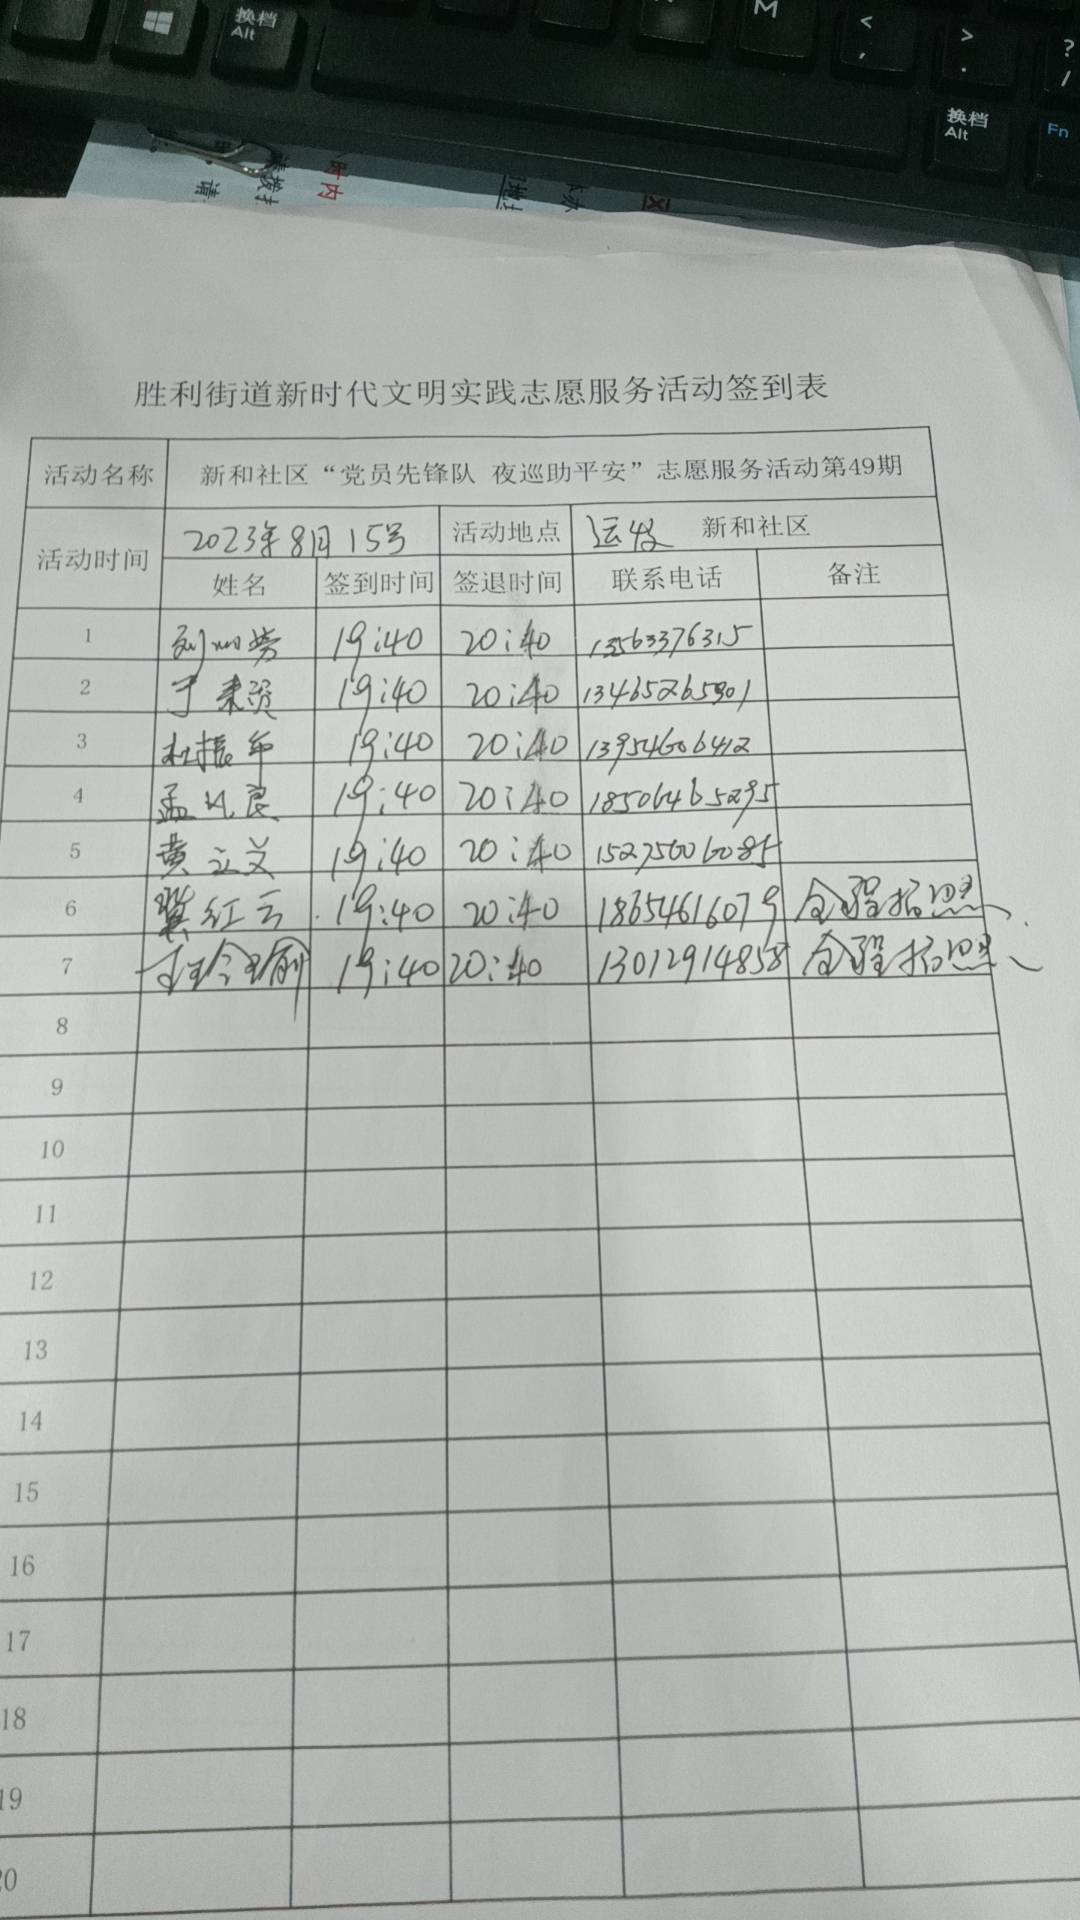 换档
Alt
M
<
,
>
.
?
/
换档
Alt
Fn
时内
请
胜利街道新时代文明实践志愿服务活动签到表
活动名称 新和社区“党员先锋队 夜巡助平安”志愿服务活动第49期
活动时间 2023年8月15号 活动地点 新和社区
姓名 签到时间 签退时间 联系电话 备注
1 19:40 20:40 13563376315
2 于 19:40 20:40 13465265901
3 杜振年 19:40 20:40 13954606412
4 孟 良 19:40 20:40 18506465295
5 黄立义 19:40 20:40 15275606085
6 冀红云 19:40 20:40 18654616079 全程拍照
7 19:40 20:40 13012914858 全程拍照
8
9
10
11
12
13
14
15
16
17
18
19
20